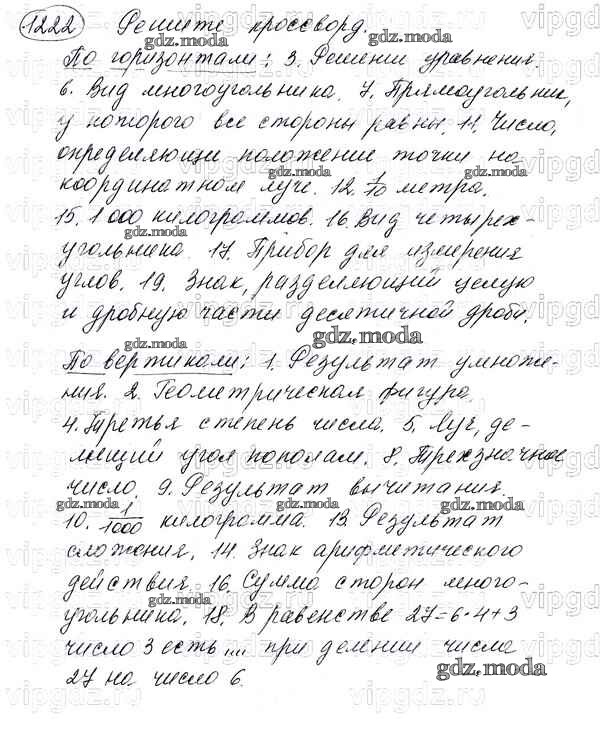 1222 Решите кроссворд.
По горизонтали: 3. Решении уравнения.
6. Вид многоугольника. 7. Прямоугольник,
у которого все стороны равны. 11. Число,
определяющи положение точки на
координатном луче. 12. 1/10 метра.
15. 1 000 килограммов. 16. Вид четырех-
угольника. 17. Прибор для измерения
углов. 19. Знак, разделяющий целую
и дробную части десятичной дроби.
По вертикали: 1. Результат умноже-
ния. 2. Геометрическая фигура.
4. Третья степень числа. 5. Луч, де-
лящий угол пополам. 8. Трехзначное
число. 9. Результат вычитания.
10. 1/1000 килограмма. 13. Результат
сложения. 14. Знак арифметического
действия. 16. Сумма сторон много-
угольника. 18. В равенстве 27=6·4+3
число 3 есть ... при делении числа
27 на число 6.